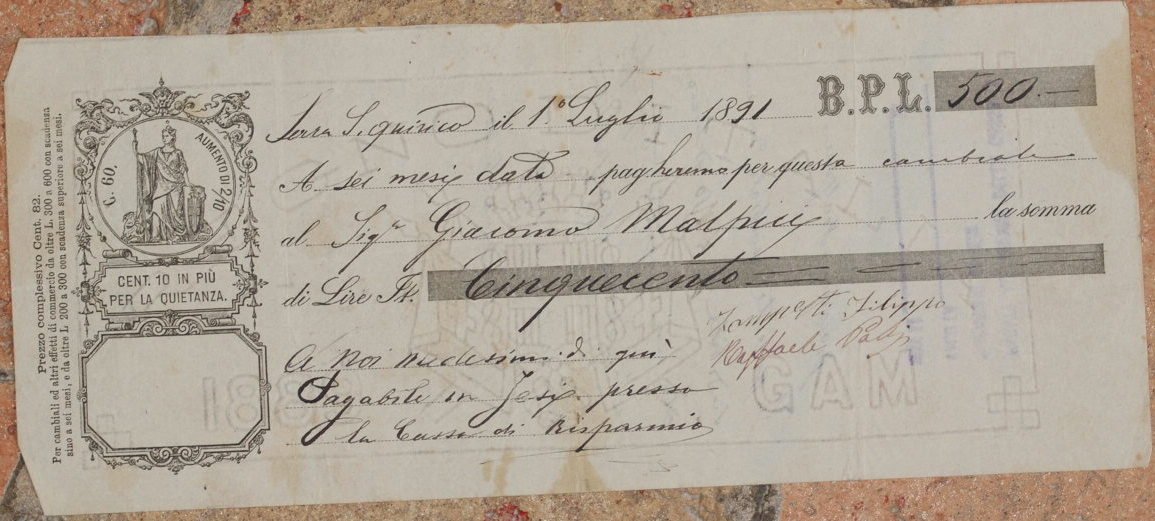 Prezzo complessivo Cent. 82.
Per cambiali ed altri effetti di commercio da oltre L. 300 a 600 con scadenza
sino a sei mesi, e da oltre L. 200 a 300 con scadenza superiore a sei mesi.
C. 60.
AUMENTO DI 2/10
CENT. 10 IN PIÙ
PER LA QUIETANZA.
Serra S. Quirico il 1° Luglio 1891 B.P.L. 500.—
A sei mesi data pagheremo per questa cambiale
al Sigr Giacomo la somma
di Lire It. Cinquecento
Filippo
Raffaele
A Noi medesimi di qui
Pagabile in Jesi presso
la Cassa di Risparmio
1881
GAM